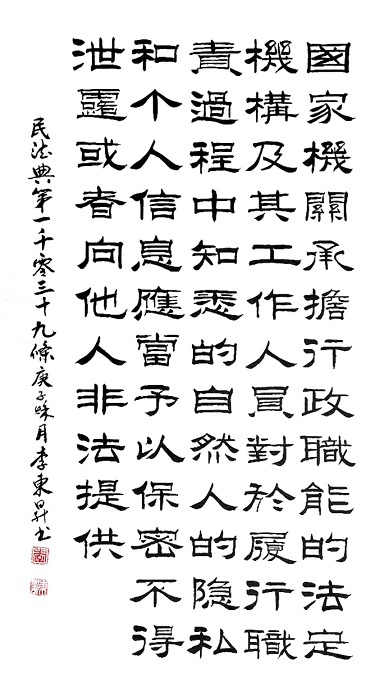 國家機關承擔行政職能的法定
機構及其工作人員對於履行職
責過程中知悉的自然人的隐私
和个人信息應當予以保密不得
泄露或者向他人非法提供
民法典第一千零三十九條庚子秋月李東昇书